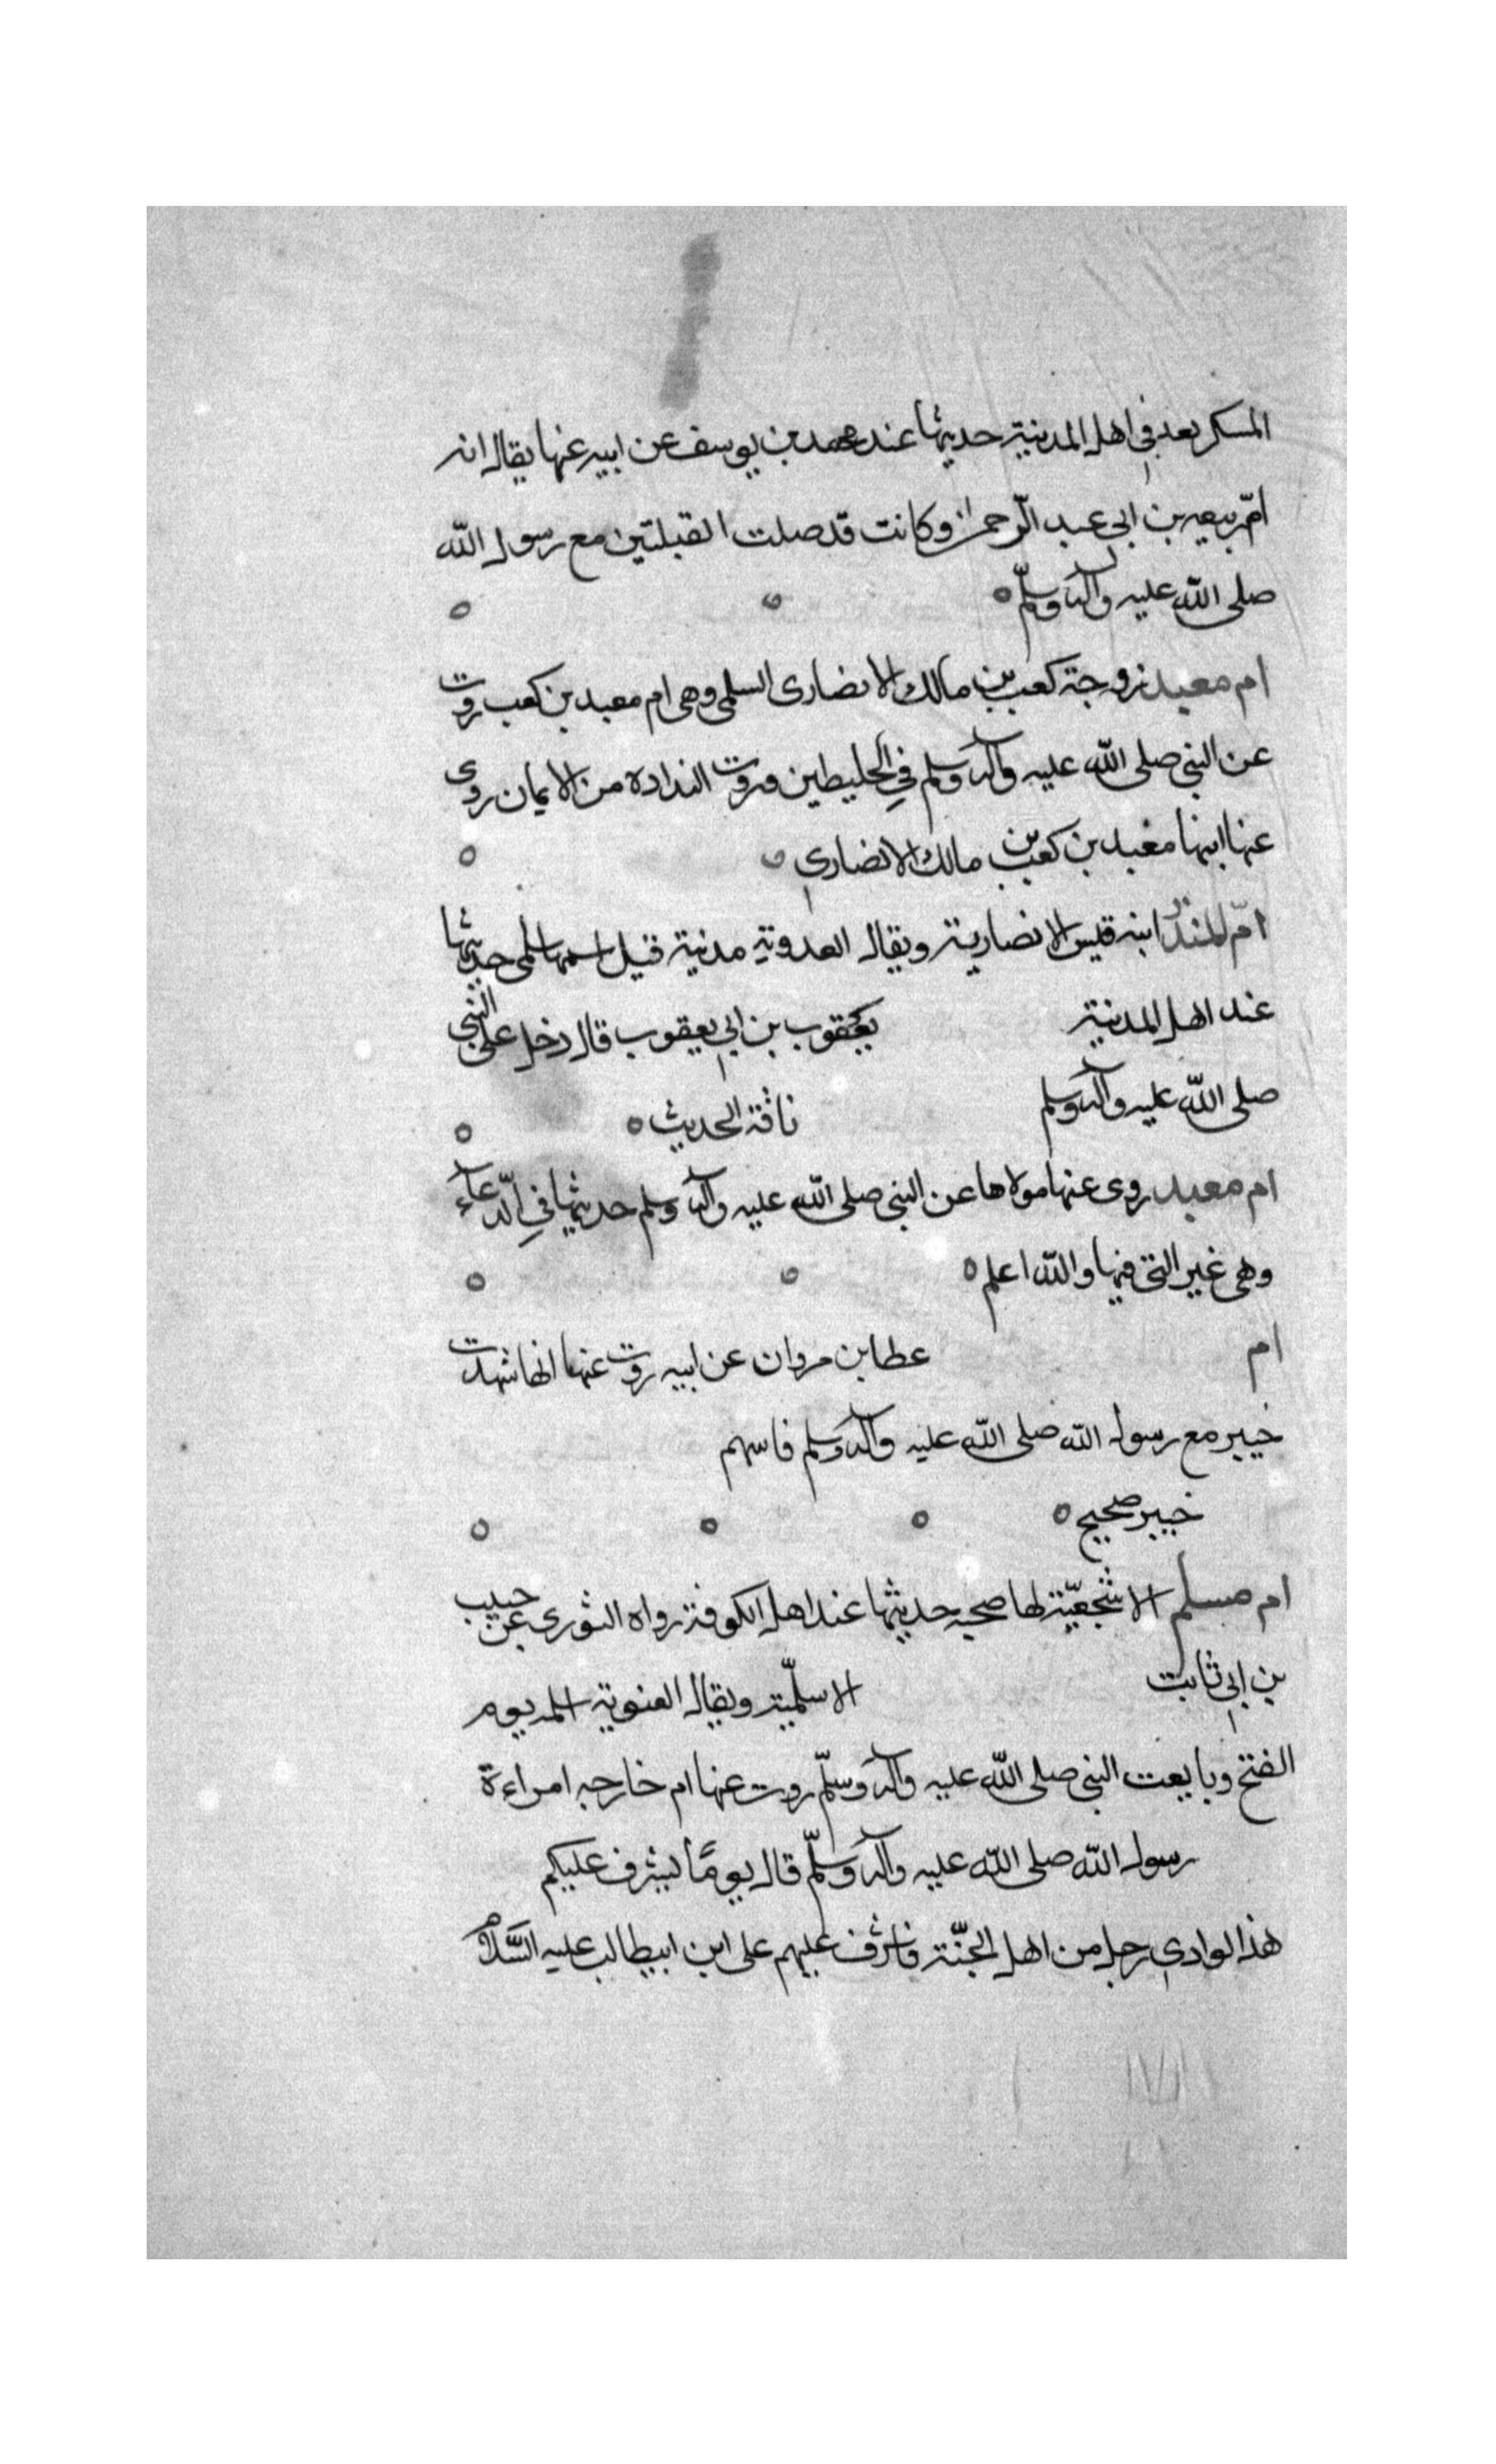 المسكر يعد في اهل المدينة حديثها عند محمد بن يوسف عن ابيه عنها يقال انه
ام ربيعه بن ابي عبد الرحمن وكانت قد صلت القبلتين مع رسول الله
صلى الله عليه وآله وسلم
ام معبد زوجة كعب بن مالك الانصارى السلمى وهى ام معبد بن كعب روت
عن النبي صلى الله عليه وآله وسلم في الخليطين وروت البذاذة من الايمان روى
عنها ابنها معبد بن كعب بن مالك الانصاري
ام المنذر ابنة قيس الانصارية ويقال العدوية مدنية قيل اسمها سلمى حديثها
عند اهل المدينة يعقوب بن ابي يعقوب قال دخل على النبي
صلى الله عليه وآله وسلم ناقة الحديث
ام معبد روى عنها مولاها عن النبي صلى الله عليه وآله وسلم حديثها في الدعاء
وهى غير التي فيها والله اعلم
ام عطا بن مروان عن ابيه روت عنها انها شهدت
خيبر مع رسول الله صلى الله عليه وآله وسلم فاسهم
خيبر صحيح
ام مسلم الاشجعية لها صحبه حديثها عند اهل الكوفة رواه الثورى عن حبيب
بن ابي ثابت الاسلمية ويقال الغنوية يوم
الفتح وبايعت النبي صلى الله عليه وآله وسلم روت عنها ام خارجه امراءة
رسول الله صلى الله عليه وآله وسلم قال يوما ليشرف عليكم
هذا الوادي رجل من اهل الجنة فاشرف عليهم على ابن ابيطالب عليه السلام